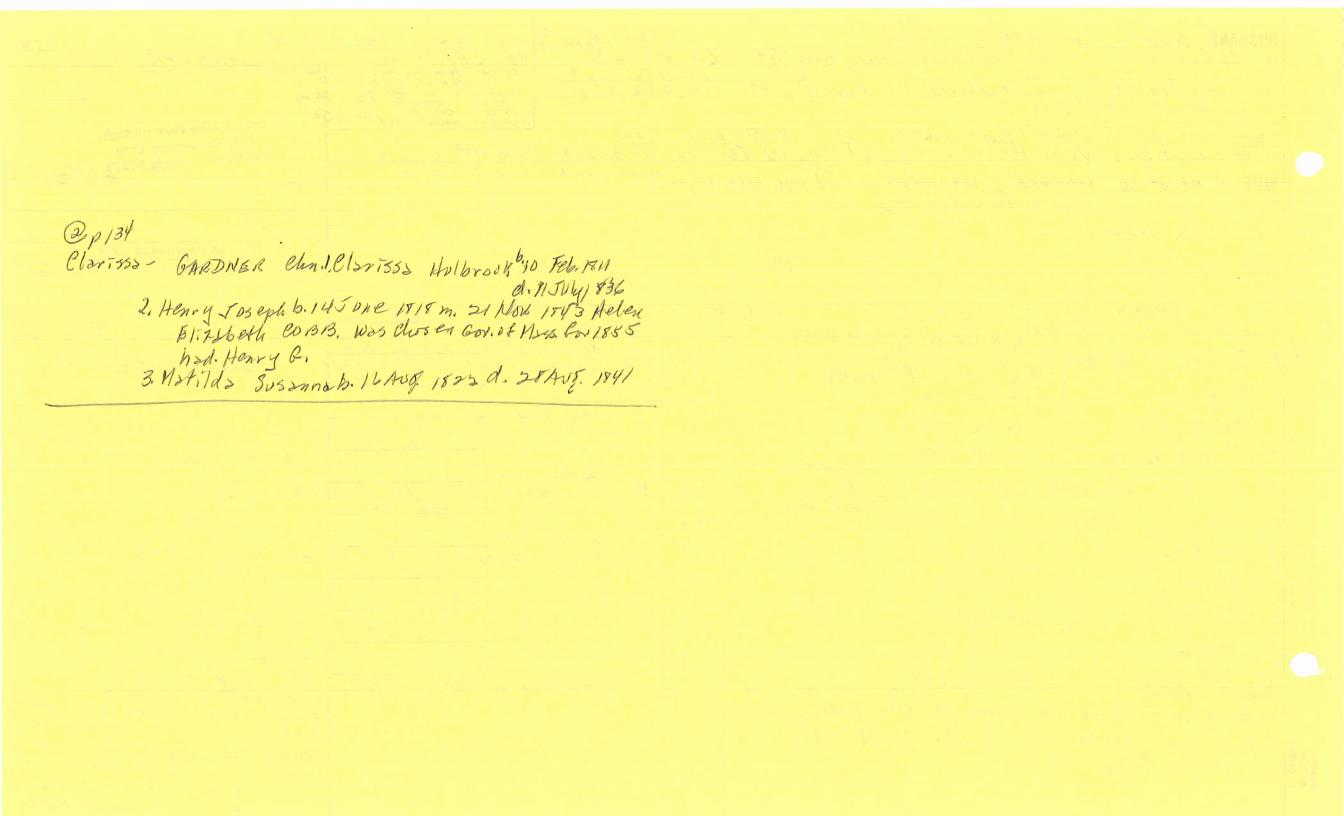 ② p 134
Clarissa - GARDNER Chn. 1. Clarissa Holbrook b. 10 Feb. 1811
d. July 1836
2. Henry Joseph b. 14 June 1818 m. 21 Nov. 1843 Helen
Elizabeth COBB. was chosen Gov. of Mass for 1855
had. Henry G.
3. Matilda Susanna b. 16 Aug 1822 d. 28 Aug. 1841